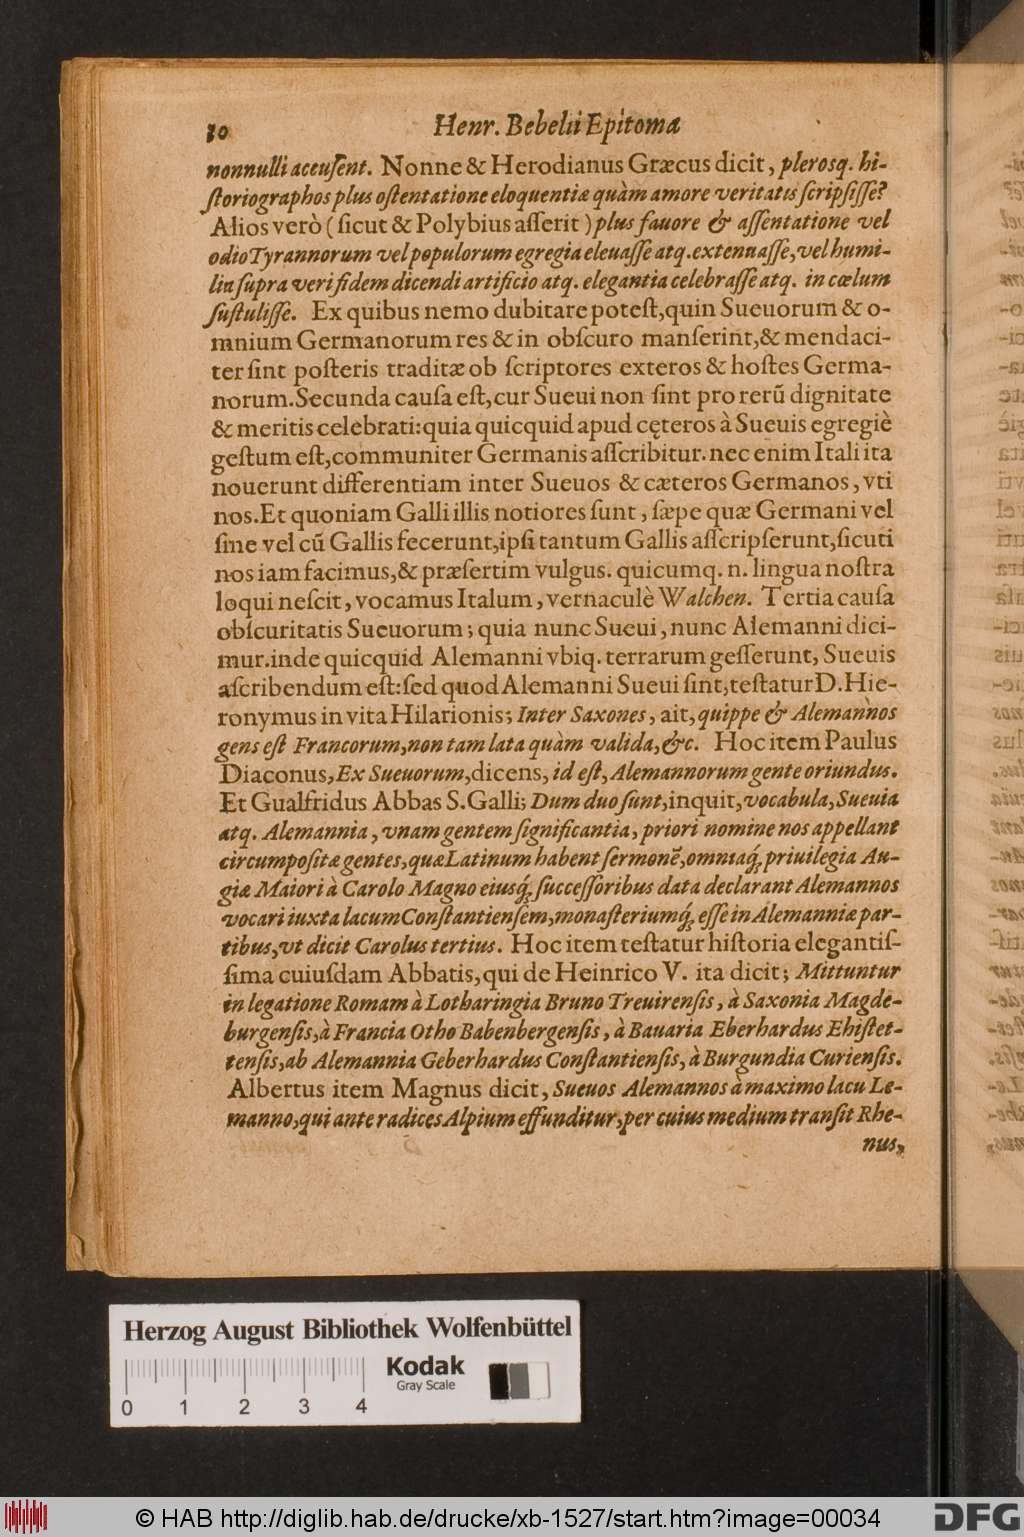 30 Henr. Bebelii Epitoma
nonnulli accuſent. Nonne & Herodianus Græcus dicit, plerosq. hi-
ſtoriographos plus oſtentatione eloquentiæ quàm amore veritatis ſcripſiſſe?
Alios verò (ſicut & Polybius aſſerit) plus fauore & aſſentatione vel
odio Tyrannorum vel populorum egregia eleuaſſe atq. extenuaſſe, vel humi-
lia ſupra veri fidem dicendi artificio atq. elegantia celebraſſe atq. in cœlum
ſuſtuliſſe. Ex quibus nemo dubitare poteſt, quin Sueuorum & o-
mnium Germanorum res & in obſcuro manſerint, & mendaci-
ter ſint poſteris traditæ ob ſcriptores exteros & hoſtes Germa-
norum. Secunda cauſa eſt, cur Sueui non ſint pro rerũ dignitate
& meritis celebrati: quia quicquid apud cęteros à Sueuis egregiè
geſtum eſt, communiter Germanis aſſcribitur. nec enim Itali ita
nouerunt differentiam inter Sueuos & cæteros Germanos, vti
nos. Et quoniam Galli illis notiores ſunt, ſæpe quæ Germani vel
ſine vel cũ Gallis fecerunt, ipſi tantum Gallis aſſcripſerunt, ſicuti
nos iam facimus, & præſertim vulgus. quicumq. n. lingua noſtra
loqui neſcit, vocamus Italum, vernaculè Walchen. Tertia cauſa
obſcuritatis Sueuorum; quia nunc Sueui, nunc Alemanni dici-
mur. inde quicquid Alemanni vbiq. terrarum geſſerunt, Sueuis
aſcribendum eſt: ſed quod Alemanni Sueui ſint, teſtatur D. Hie-
ronymus in vita Hilarionis; Inter Saxones, ait, quippe & Alemannos
gens eſt Francorum, non tam lata quàm valida, &c. Hoc item Paulus
Diaconus, Ex Sueuorum, dicens, id eſt, Alemannorum gente oriundus.
Et Gualfridus Abbas S. Galli; Dum duo ſunt, inquit, vocabula, Sueuia
atq. Alemannia, vnam gentem ſignificantia, priori nomine nos appellant
circumpoſitæ gentes, quæ Latinum habent ſermonẽ, omniaq́; priuilegia Au-
giæ Maiori à Carolo Magno eiusq́; ſucceſſoribus data declarant Alemannos
vocari iuxta lacum Conſtantienſem, monaſteriumq́; eſſe in Alemanniæ par-
tibus, vt dicit Carolus tertius. Hoc item teſtatur hiſtoria elegantiſ-
ſima cuiuſdam Abbatis, qui de Heinrico V. ita dicit; Mittuntur
in legatione Romam à Lotharingia Bruno Treuirenſis, à Saxonia Magde-
burgenſis, à Francia Otho Babenbergenſis, à Bauaria Eberhardus Ehiſtet-
tenſis, ab Alemannia Geberhardus Conſtantienſis, à Burgundia Curienſis.
Albertus item Magnus dicit, Sueuos Alemannos à maximo lacu Le-
manno, qui ante radices Alpium effunditur, per cuius medium tranſit Rhe-
nus,
Herzog August Bibliothek Wolfenbüttel
Kodak
Gray Scale
0 1 2 3 4
© HAB http://diglib.hab.de/drucke/xb-1527/start.htm?image=00034
DFG